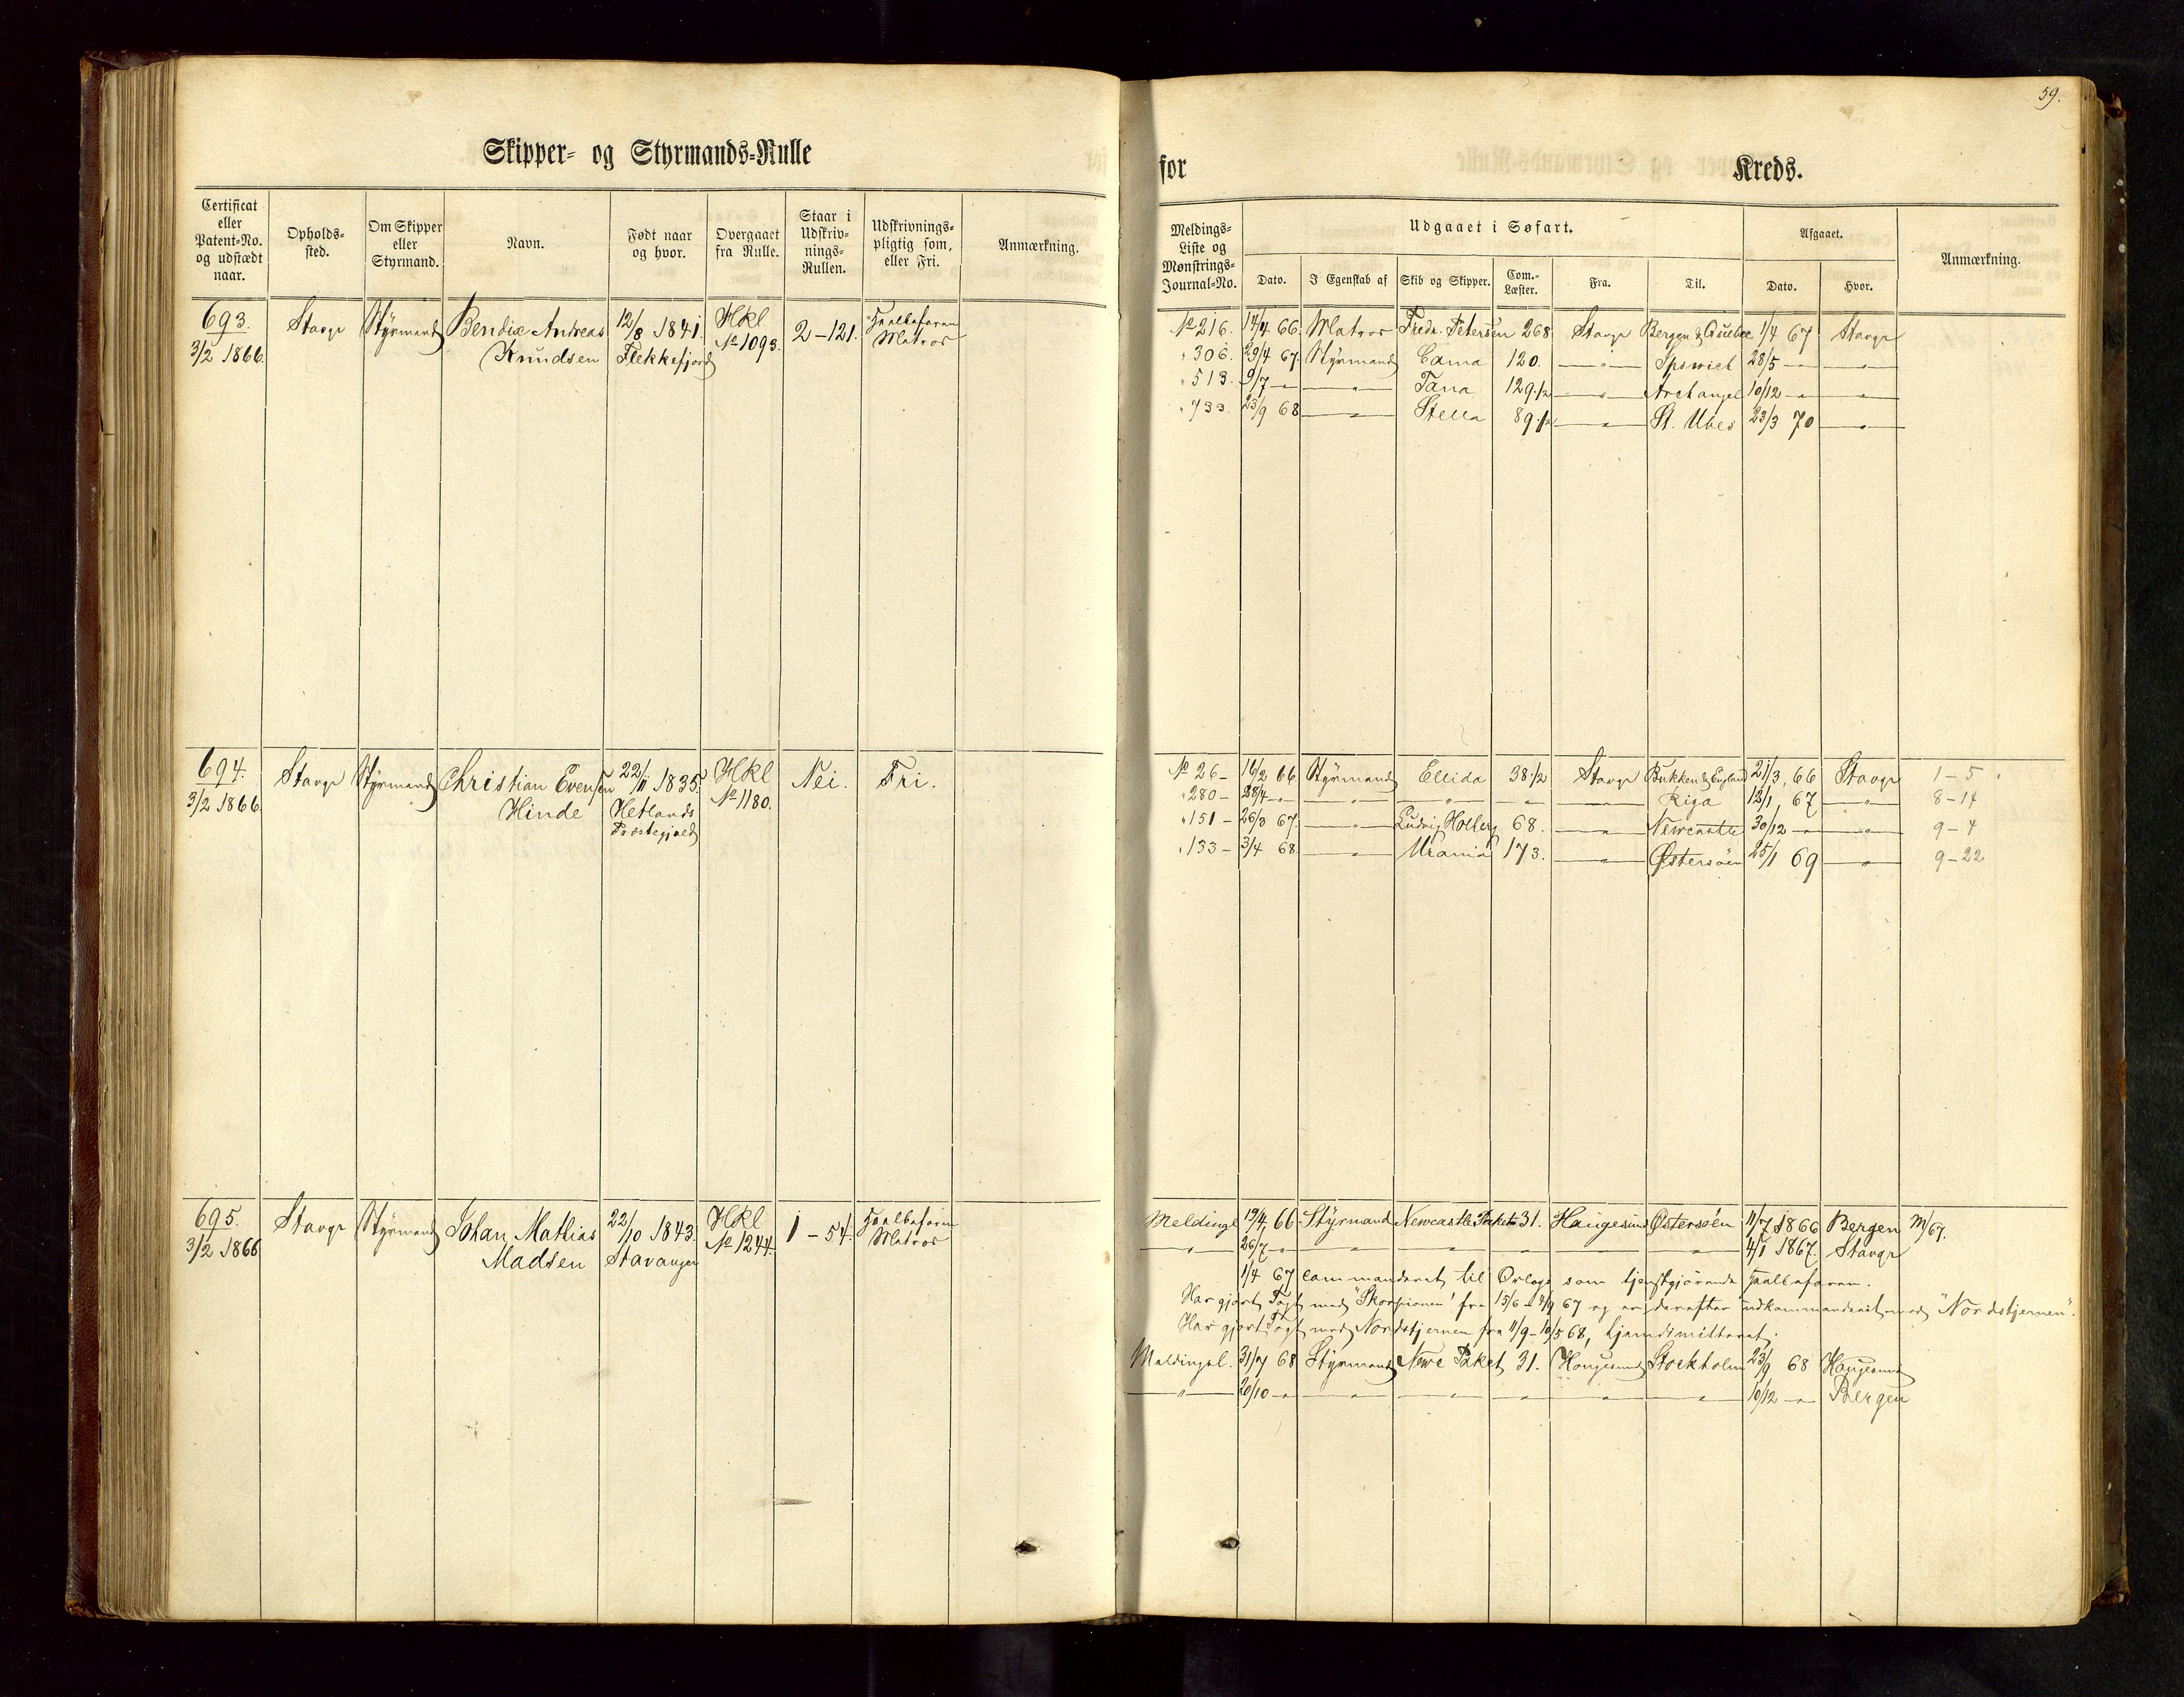 59.
Skipper- og Styrmands-Rulle
for Kreds.
Certificat eller Patent-No. og udstædt naar.
Opholds-sted.
Om Skipper eller Styrmand.
Navn.
Født naar og hvor.
Overgaaet fra Rulle.
Staar i Udskriv-nings-Rullen.
Udskrivnings-pligtig som, eller Fri.
Anmærkning.
Meldings-Liste og Mønstrings-Journal-No.
Udgaaet i Søfart.
Dato. I Egenskab af Skib og Skipper. Com.-Læster. Fra. Til.
Afgaaet.
Dato. Hvor.
Anmærkning.
693. Stavgr Styrmand Bendix Andreas 12/8 1841. Hkl 2-121. Heelbefaren
3/2 1866. Knudsen Flekkefjord No 1093. Matros
No 216. 14/4 66. Matros Fredr. Petersen 268 Stavgr Bergen & Quebec 1/4 67 Stavgr
" 306. 29/4 67. Styrmand Cama 120. — " — Ipswich 28/5 — — " —
" 513. 9/7 — — " — Tana 129 1/2 — " — Archangel 10/12 — — " —
" 733. 23/9 68 — " — Stella 89 1/2 — " — St. Ubes 23/3 70 — " —
694. Stavgr Styrmand Christian Evensen 22/11 1835. Hkl Nei. Fri.
3/2 1866. Hinde Hetlands No 1180.
Præstegjæld
No 26 - 16/2 66 Styrmand Ellida 38 1/2 Stavgr Bukken & England 21/3, 66 Stavgr 1-5
" 280 - 28/4 — — " — — " — — " — — " — Riga 12/1, 67 — " — 8-14
" 151 - 26/3 67. — " — Ludvig Holberg 68. — " — Newcastle 30/12 — — " — 9-4
" 133 - 3/4 68 — " — Urania 173. — " — Østersøen 25/1 69 — " — 9-22
695. Stavgr Styrmand Johan Mathias 22/10 1843. Hkl 1-54. Heelbefaren
3/2 1866 Madsen Stavanger No 1244. Matros
Meldingsl 19/4, 66 Styrmand Newcastle Packet 31. Haugesund Østersøen 11/7 1866 Bergen M/67.
— " — 26/7 — — " — — " — — " — — " — — " — 4/1 1867. Stavgr
1/4 67 commanderet til Orlogs som tjenstgjørende Heelbefaren.
Har gjort Togt med "Skorpionen" fra 15/6 - 4/9 67 og er derefter udkommanderet med "Nordstjernen".
Har gjort Togt med Nordstjernen fra 11/9 - 10/5 68, hjemdimitteret.
Meldingsl. 31/7 68 Styrmand Newc Paket 31. Haugesund Stockholm 23/9 68 Haugesund
— " — 20/10 — — " — — " — — " — — " — — " — 10/12 — Bergen